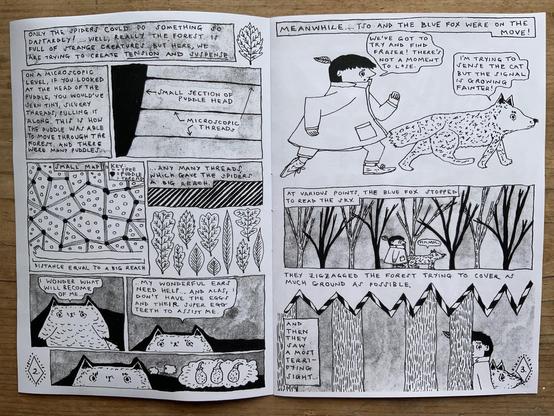 ONLY THE SPIDERS COULD DO SOMETHING SO
DASTARDLY! ...WELL, REALLY THE FOREST IS
FULL OF STRANGE CREATURES...BUT HERE, WE
ARE TRYING TO CREATE TENSION AND SUSPENSE.
ON A MICROSCOPIC
LEVEL, IF YOU LOOKED
AT THE HEAD OF THE
PUDDLE, YOU WOULD'VE
SEEN TINY, SILVERY
THREADS PULLING IT
ALONG. THIS IS HOW
THE PUDDLE WAS ABLE
TO MOVE THROUGH THE
FOREST. AND THERE
WERE MANY PUDDLES...
SMALL SECTION OF
PUDDLE HEAD
MICROSCOPIC
THREADS
SMALL MAP
KEY
DISTANCE EQUAL TO A BIG REACH
...ANY MANY THREADS,
WHICH GAVE THE SPIDERS
A BIG REACH.
WONDER WHAT
WILL BECOME
OF ME...
MY WONDERFUL EARS
NEED HELP... AND ALAS, I
DON'T HAVE THE EGGS
AND THEIR SUPER EGG
TEETH TO ASSIST ME.
2
MEANWHILE... TSO AND THE BLUE FOX WERE ON THE
MOVE!
WE'VE GOT TO
TRY AND FIND
FRASER! THERE'S
NOT A MOMENT
TO LOSE.
I'M TRYING TO
SENSE THE CAT
BUT THE SIGNAL
IS GROWING
FAINTER!
AT VARIOUS POINTS, THE BLUE FOX STOPPED
TO READ THE SKY.
THEY ZIGZAGGED THE FOREST TRYING TO COVER AS
MUCH GROUND AS POSSIBLE.
AND
THEN
THEY
SAW
A MOST
TERRI-
FYING
SIGHT...
3